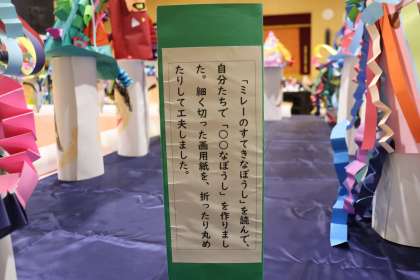 「ミレーのすてきなぼうし」を読んで、
自分たちで「〇〇なぼうし」を作りまし
た。細く切った画用紙を、折ったり丸め
たりして工夫しました。